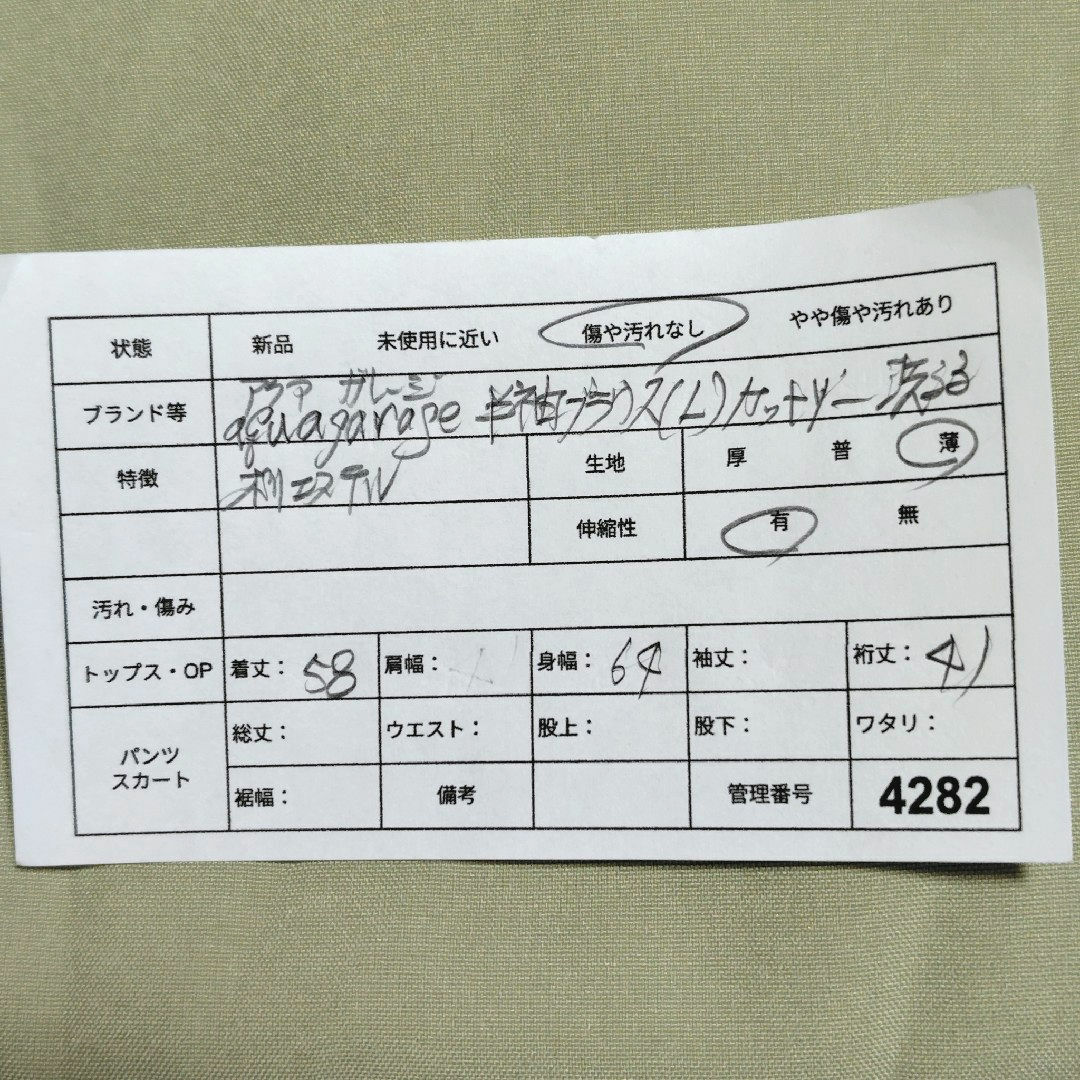 状態 新品 未使用に近い 傷や汚れなし やや傷や汚れあり
アクア ガレージ
ブランド等 aquagarage 半袖ブラウス(L)カットソー 洗える
特徴 ポリエステル 生地 厚 普 薄
伸縮性 有 無
汚れ・傷み
トップス・OP 着丈: 58 肩幅: 身幅: 64 袖丈: 裄丈: 41
パンツ スカート
総丈: ウエスト: 股上: 股下: ワタリ:
裾幅: 備考 管理番号 4282